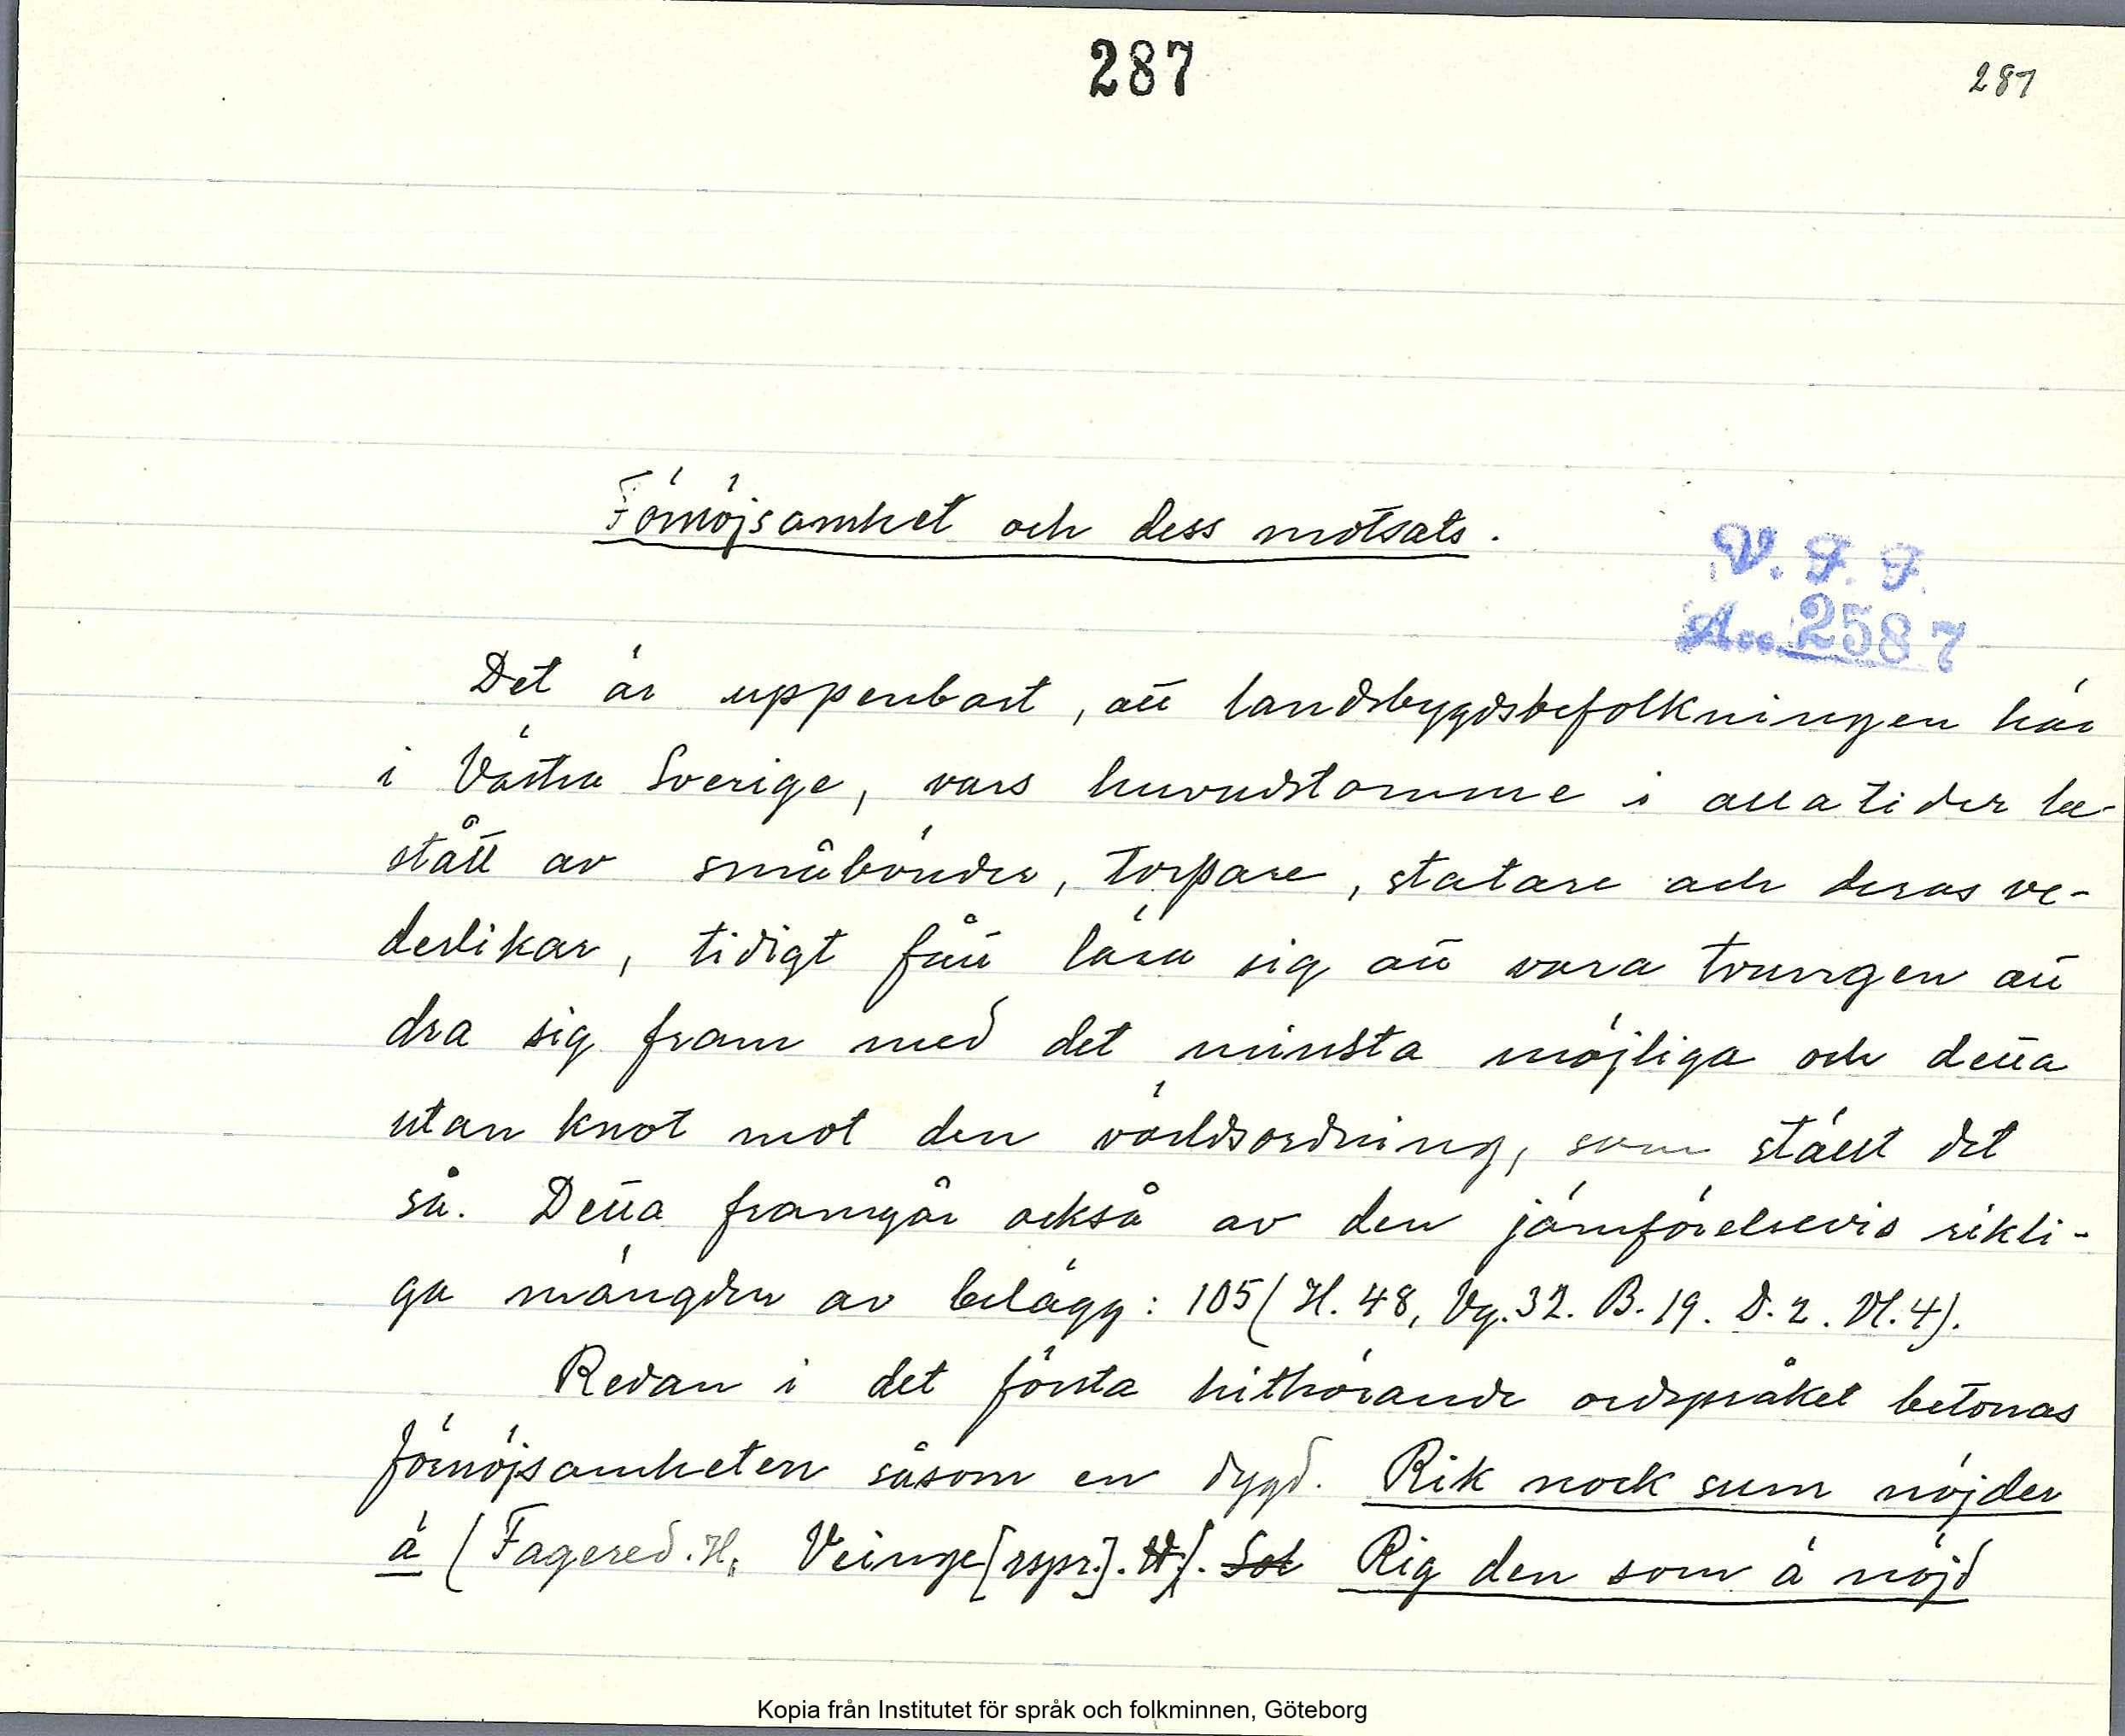 287
287
Förnöjsamhet och dess motsats.
V. F. F.
Acc. 2587
Det är uppenbart, att landsbygdsbefolkningen här
i Västra Sverige, vars huvudstomme i alla tider be-
stått av småbönder, torpare, statare och deras ve-
derlikar, tidigt fått lära sig att vara tvungen att
dra sig fram med det minsta möjliga och detta
utan knot mot den världsordning, som ställt det
så. Detta framgår också av den jämförelsevis rikli-
ga mängden av belägg: 105 (H. 48, Vg. 32. B. 19. D. 2. Vl. 4).
Redan i det första hithörande ordspråket betonas
förnöjsamheten såsom en dygd. Rik nock sum nöjder
ä (Fagered. H, Veinge [rspr.]. H). Rig den som ä nöjd
Kopia från Institutet för språk och folkminnen, Göteborg